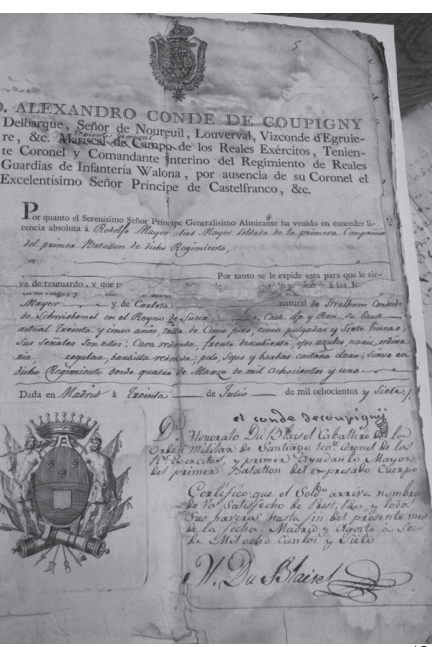 5
D. ALEXANDRO CONDE DE COUPIGNY
Delbarque, Señor de Noureuil, Louverval, Vizconde d'Egruie-
re, &c. Mariscal de Campo de los Reales Exércitos, Tenien-
te Coronel y Comandante interino del Regimiento de Reales
Guardias de Infantería Walona, por ausencia de su Coronel el
Excelentísimo Señor Príncipe de Castelfranco, &c.
Por quanto el Serenísimo Señor Príncipe Generalísimo Almirante ha venido en conceder li-
cencia absoluta á Rodolfo Mayer Soldado de la primera Compañia
del primer Batallon de dicho Regimiento,
Por tanto se le expide esta para que le sir-
va de resguardo, y que
Mayer y de Carlota natural de
de en el Reyno de
actual Treinta y cinco años, talla de Cinco pies, cinco pulgadas y Siete lineas,
Sus señales son estas: Cara redonda, frente descubierta, ojos azules, nariz ordina
ria regular, barbilla redonda: pelo, cejas y barbas castaño claro; Sirve en
dicho Regimiento desde quatro de Marzo de mil ochocientos y uno
Dada en Madrid á Treinta de Julio de mil ochocientos y Siete
el conde decoupignÿ
Dn. Honorato Du Blaisel Caballero de la
Orden Militar de Santiago tente. coronel de los
Rs. Exercitos y primer Ayudante Mayor
del primer Batallon del expresado Cuerpo
Certifico que el Soldo. arriva nombra
do va Satisfecho de Prest, y todos
Sus haveres hasta fin del presente mes
de la fecha. Madrid y Agosto a
de Mil ocho cientos y Siete
H. Du Blaisel